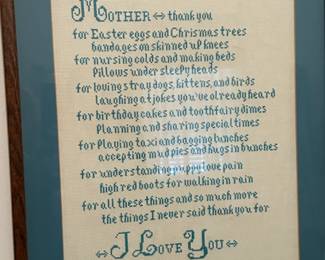 MOTHER ⇔ thank you
for Easter eggs and Chrismas trees
bandages on skinned up knees
for nursing colds and making beds
Pillows under sleepyheads
for loving stray dogs, kittens, and birds
laughing at jokes you've already heard
for birthday cakes and toothfairy dimes
Planning and sharing special times
for Playing taxi and bagging lunches
accepting mud pies and hugs in bunches
for understanding puppy love pain
high red boots for walking in rain
for all these things and so much more
the things I never said thank you for
⇔ I LOVE YOU ⇔